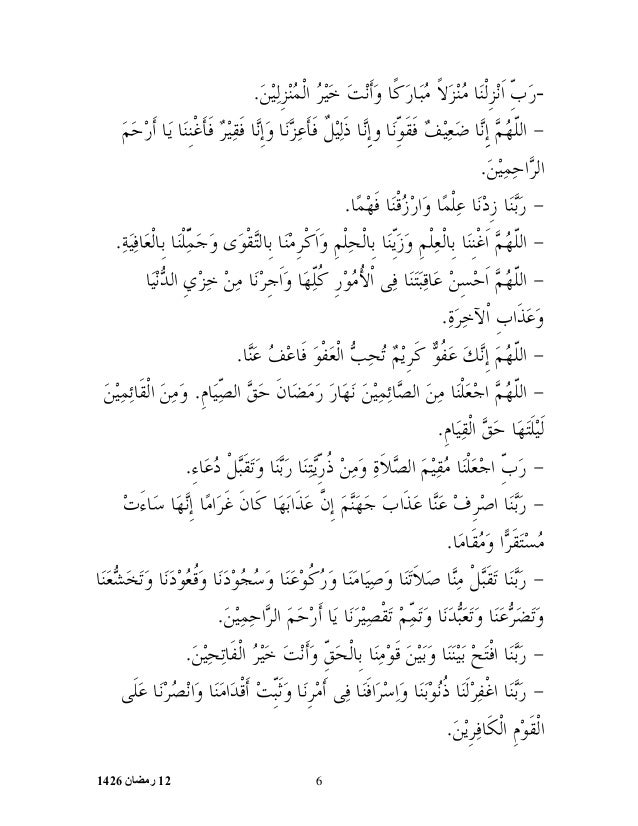 -رَبِّ اَنْزِلْنَا مُنْزَلاً مُبَارَكًا وَأَنْتَ خَيْرُ الْمُنْزِلِيْنَ.
- اللّهُمَّ إِنَّا ضَعِيْفٌ فَقَوِّنَا وإِنَّا ذَلِيْلٌ فَأَعِزَّنَا وَإِنَّا فَقِيْرٌ فَأَغْنِنَا يَا أَرْحَمَ
الرَّاحِمِيْنَ.
- رَبَّنَا زِدْنَا عِلْمًا وَارْزُقْنَا فَهْمًا.
- اللّهُمَّ اَغْنِنَا بِالْعِلْمِ وَزَيِّنَا بِالْحِلْمِ وَاَكْرِمْنَا بِالتَّقْوَى وَجَمِّلْنَا بِالْعَافِيَةِ.
- اللّهُمَّ اَحْسِنْ عَاقِبَتَنَا فِى اْلأُمُوْرِ كُلِّهَا وَاَجِرْنَا مِنْ خِزْيِ الدُّنْيَا
وَعَذَابِ اْلآخِرَةِ.
- اللّهُمَ إِنَّكَ عَفُوٌّ كَرِيْمٌ تُحِبُّ الْعَفْوَ فَاعْفُ عَنَّا.
- اللّهُمَّ اجْعَلْنَا مِنَ الصَّائِمِيْنَ نَهَارَ رَمَضَانَ حَقَّ الصِّيَامِ. وَمِنَ الْقَائِمِيْنَ
لَيْلَتَهَا حَقَّ الْقِيَامِ.
- رَبِّ اجْعَلْنَا مُقِيْمَ الصَّلاَةِ وَمِنْ ذُرِّيَّتِنَا رَبَّنَا وَتَقَبَّلْ دُعَاءِ.
- رَبَّنَا اصْرِفْ عَنَّا عَذَابَ جَهَنَّمَ إِنَّ عَذَابَهَا كَانَ غَرَامًا إِنَّهَا سَاءَتْ
مُسْتَقَرًّا وَمُقَامَا.
- رَبَّنَا تَقَبَّلْ مِنَّا صَلاَتَنَا وَصِيَامَنَا وَرُكُوْعَنَا وَسُجُوْدَنَا وَقُعُوْدَنَا وَتَخَشُّعَنَا
وَتَضَرُّعَنَا وَتَعَبُّدَنَا وَتَمِّمْ تَقْصِيْرَنَا يَا أَرْحَمَ الرَّاحِمِيْنَ.
- رَبَّنَا افْتَحْ بَيْنَنَا وَبَيْنَ قَوْمِنَا بِالْحَقِّ وَأَنْتَ خَيْرُ الْفَاتِحِيْنَ.
- رَبَّنَا اغْفِرْلَنَا ذُنُوْبَنَا وَاِسْرَافَنَا فِى أَمْرِنَا وَثَبِّتْ أَقْدَامَنَا وَانْصُرْنَا عَلَى
الْقَوْمِ الْكَافِرِيْنَ.
12 رمضان 1426 6